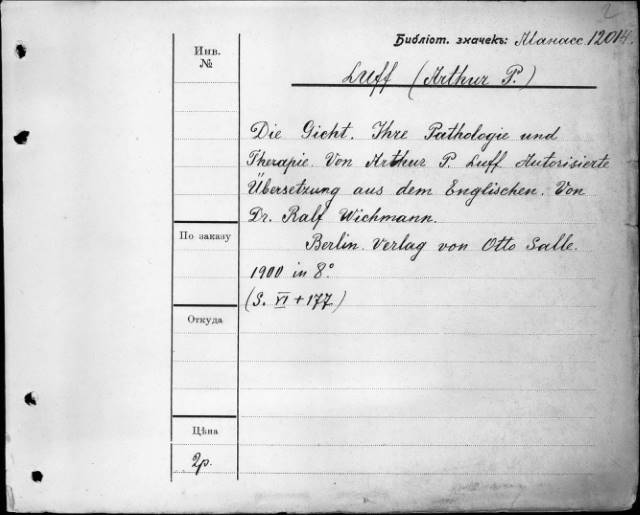 2
Библіот. значекъ: Манасс. 12014.
Инв.
№
Luff (Arthur P.)
Die Gicht. Ihre Pathologie und
Therapie. Von Arthur P. Luff. Autorisierte
Übersetzung aus dem Englischen. Von
Dr. Ralf Wichmann.
По заказу
Berlin. Verlag von Otto Salle.
1900 in 8°
(S. VI + 177)
Откуда
Цѣна
2р.